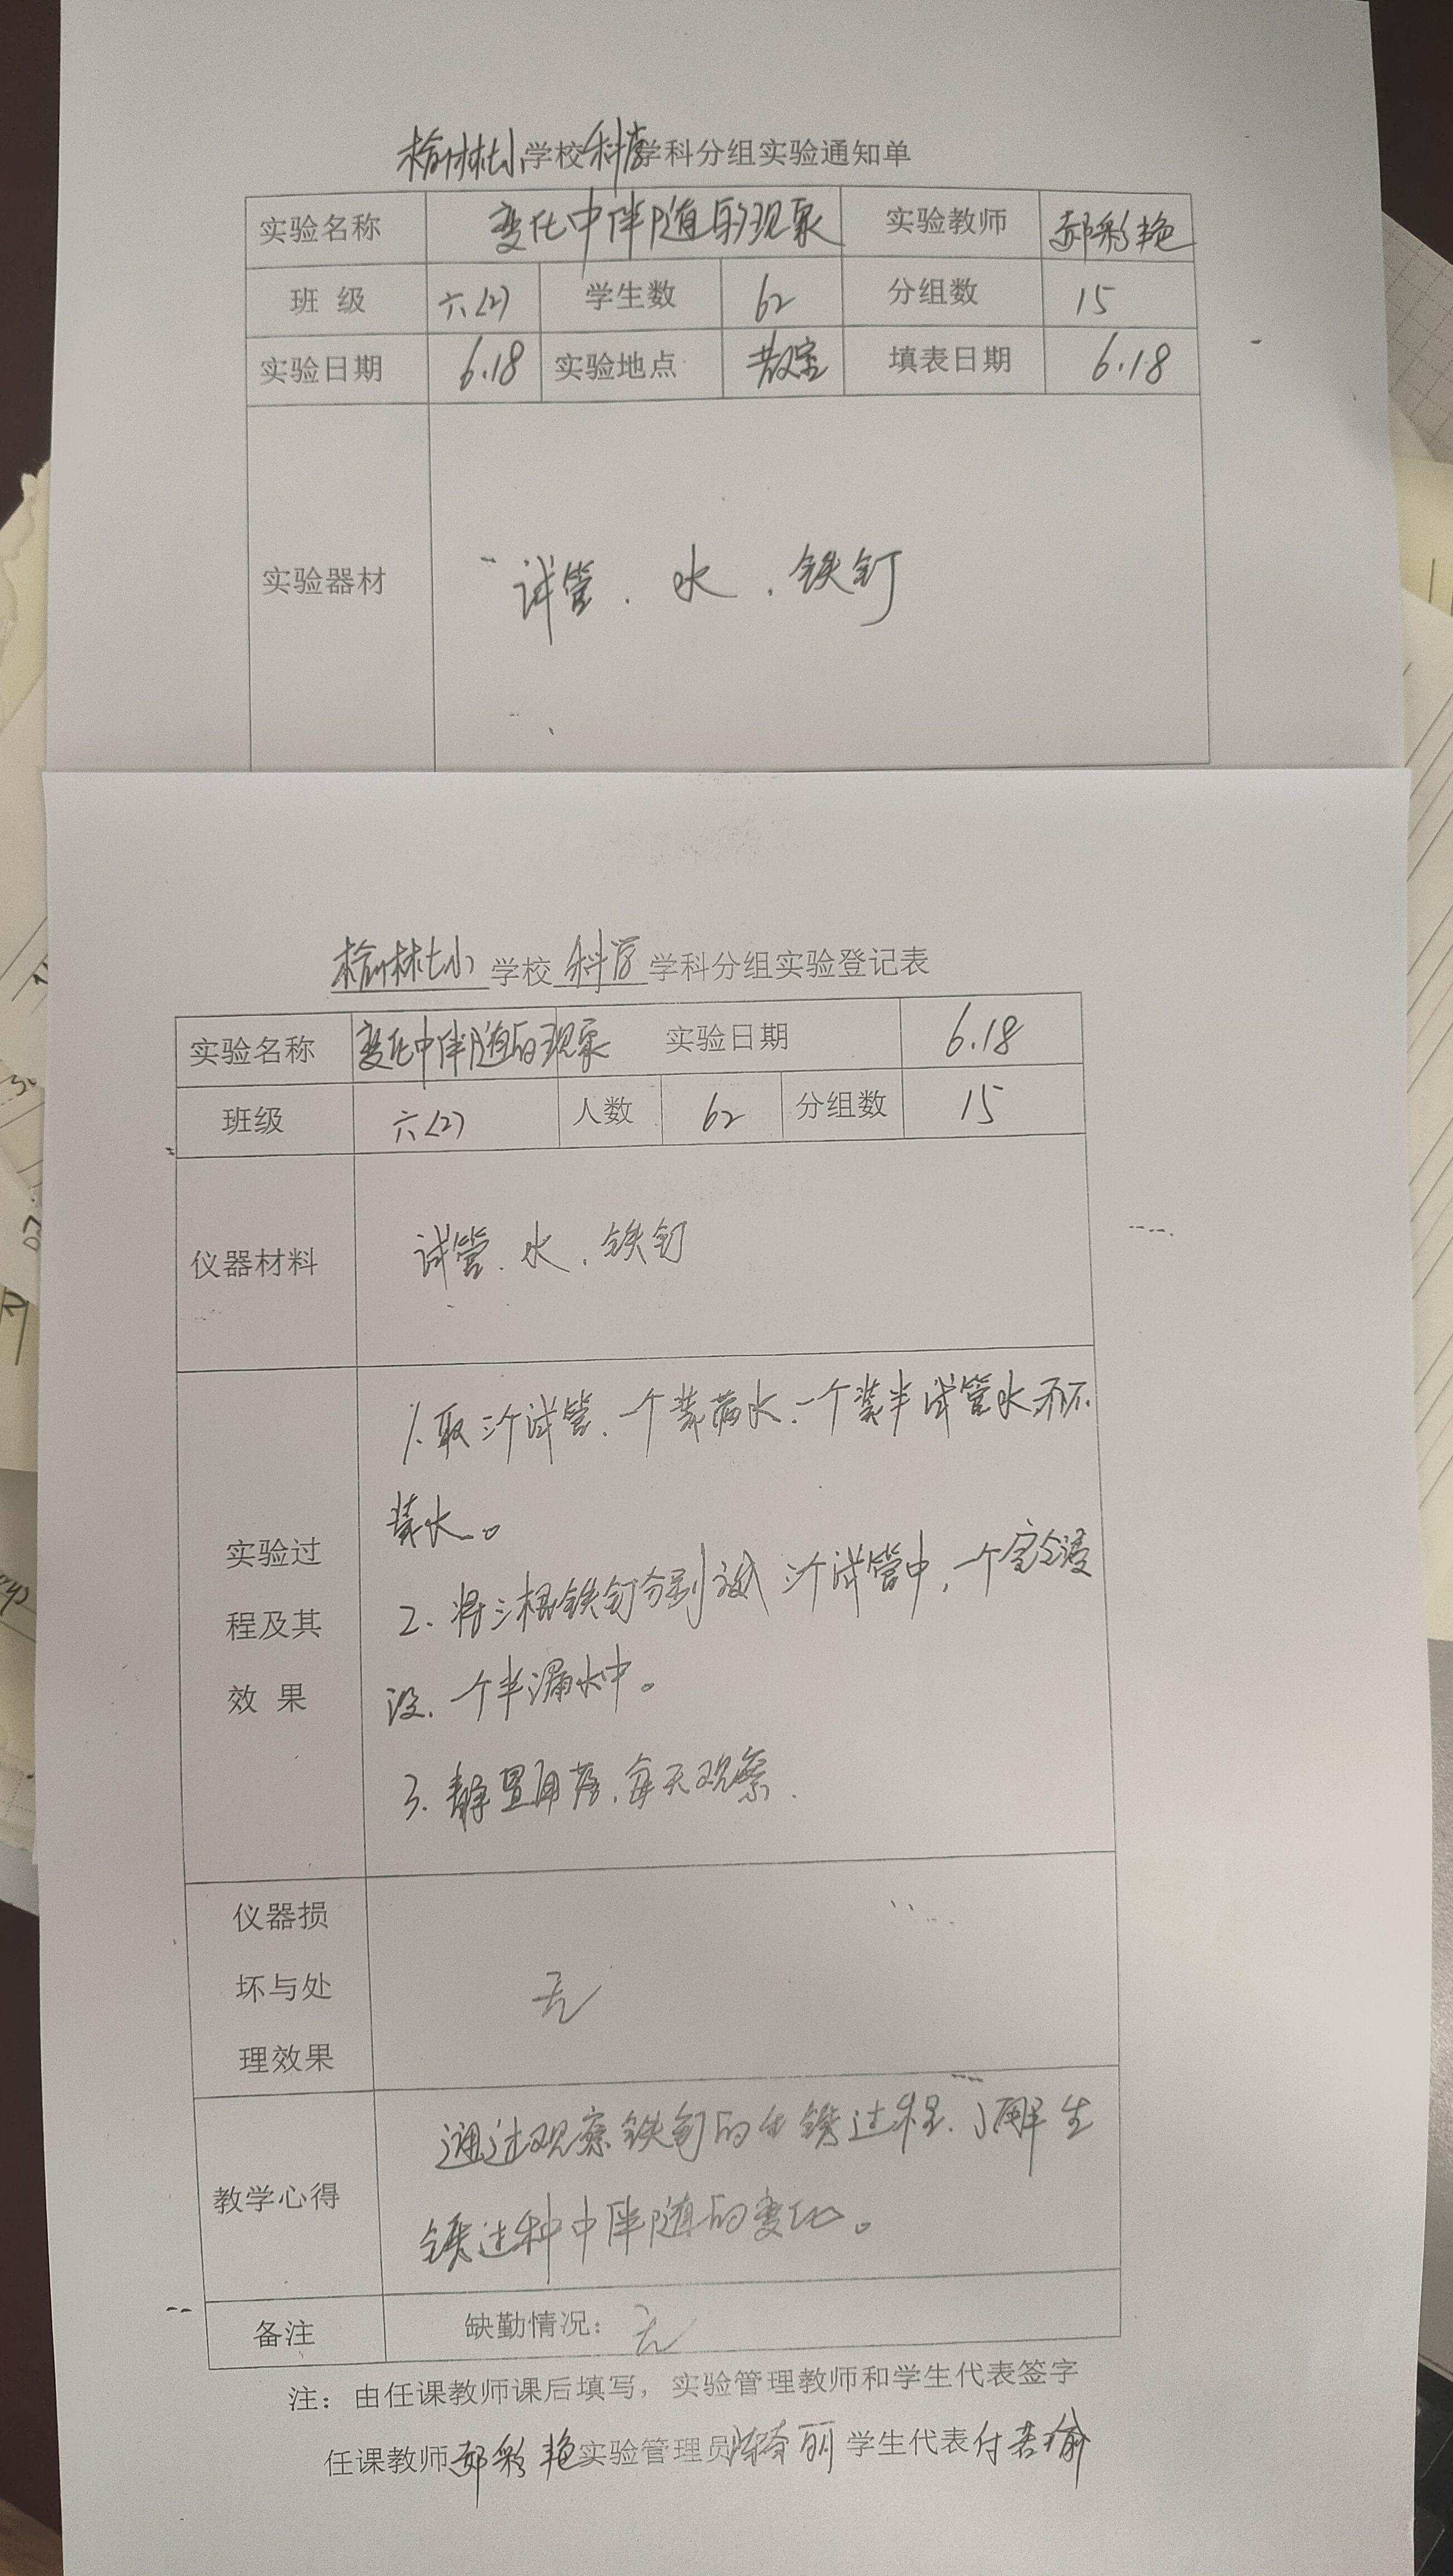 榆林七小学校科学学科分组实验通知单
实验名称 变化中伴随的现象 实验教师 郝彩艳
班 级 六(2) 学生数 62 分组数 15
实验日期 6.18 实验地点 教室 填表日期 6.18
实验器材 试管、水、铁钉
榆林七小学校科学学科分组实验登记表
实验名称 变化中伴随的现象 实验日期 6.18
班级 六(2) 人数 62 分组数 15
仪器材料 试管、水、铁钉
1、取三个试管、一个装满水、一个装半试管水
装水。
实验过
2、将三根铁钉分别 三个试管中，一个完全浸
程及其
没、一个半 水中。
效 果
3、静置 每天观察.
仪器损
坏与处
无
理效果
通过观察铁钉的生锈过程、了解生
教学心得
锈过种中伴随的变化。
备注 缺勤情况：无
注：由任课教师课后填写，实验管理教师和学生代表签字
任课教师郝彩艳实验管理员 丽 学生代表付若瑜